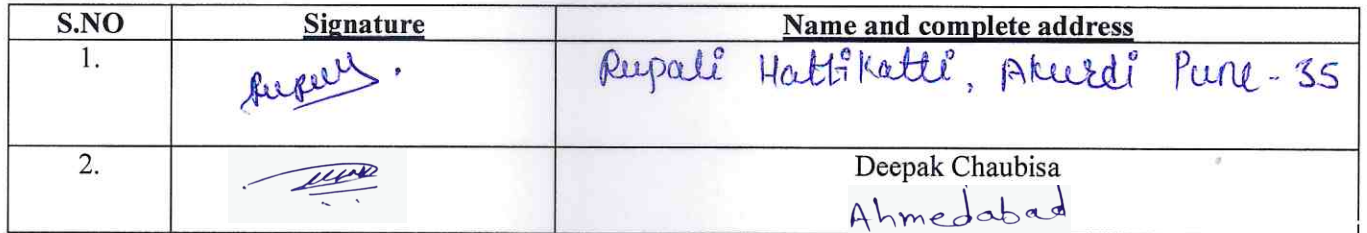 S.NO Signature Name and complete address
1. Rupali Hattikatti, Akurdi Pune - 35
2. Deepak Chaubisa
Ahmedabad